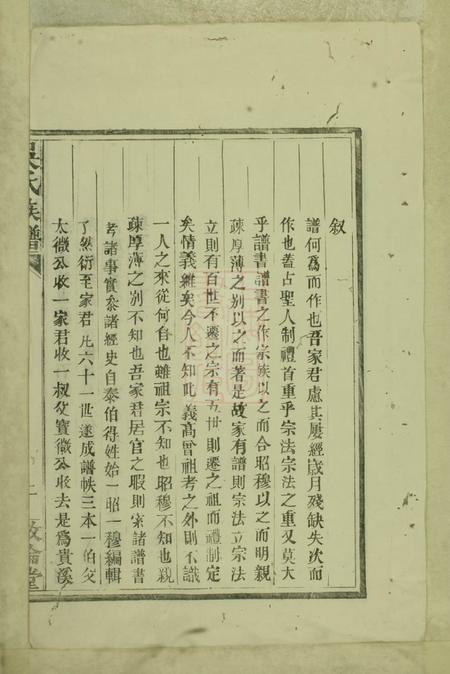 叙
譜何爲而作也吾家君慮其屢經歲月殘缺失次而
作也蓋古聖人制禮首重乎宗法宗法之重又莫大
乎譜書譜書之作宗族以之而合昭穆以之而明親
疎厚薄之別以之而著是故家有譜則宗法立宗法
立則有百世不遷之宗有五世則遷之祖而禮制定
矣情義維矣今人不知此義高曾祖考之外則不識
一人之來從何自也雖祖宗不知也昭穆不知也親
疎厚薄之別不知也吾家君居官之暇則案諸譜書
考諸事實叅諸經史自泰伯得姓始一昭一穆編輯
了然衍至家君凡六十一世遂成譜帙三本一伯父
太微公收一家君收一叔父實微公收去是爲貴溪
吳氏族譜
敦倫堂